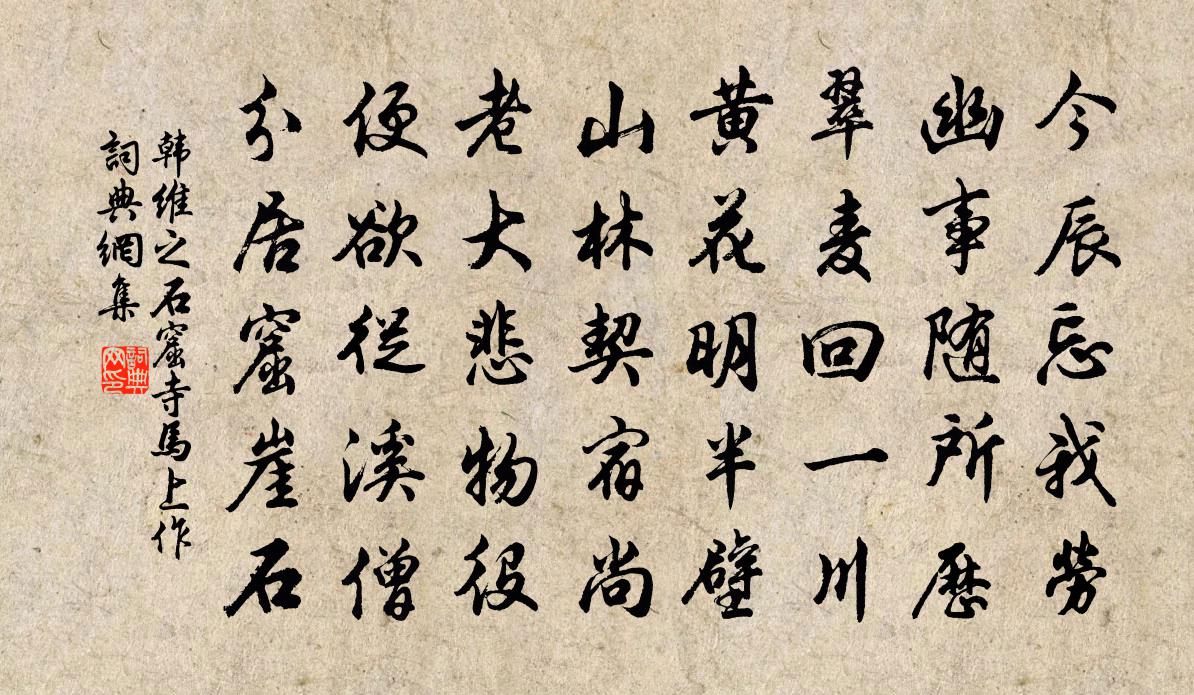 今辰忘我勞
幽事随所歷
翠麦回一川
黄花明半壁
山林契宿尚
老大悲物役
便欲從溪僧
分居窟崖石
韩维之石窟寺馬上作
詞典網集
詞典网印